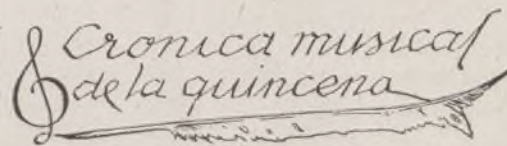 Cronica musical
de la quincena